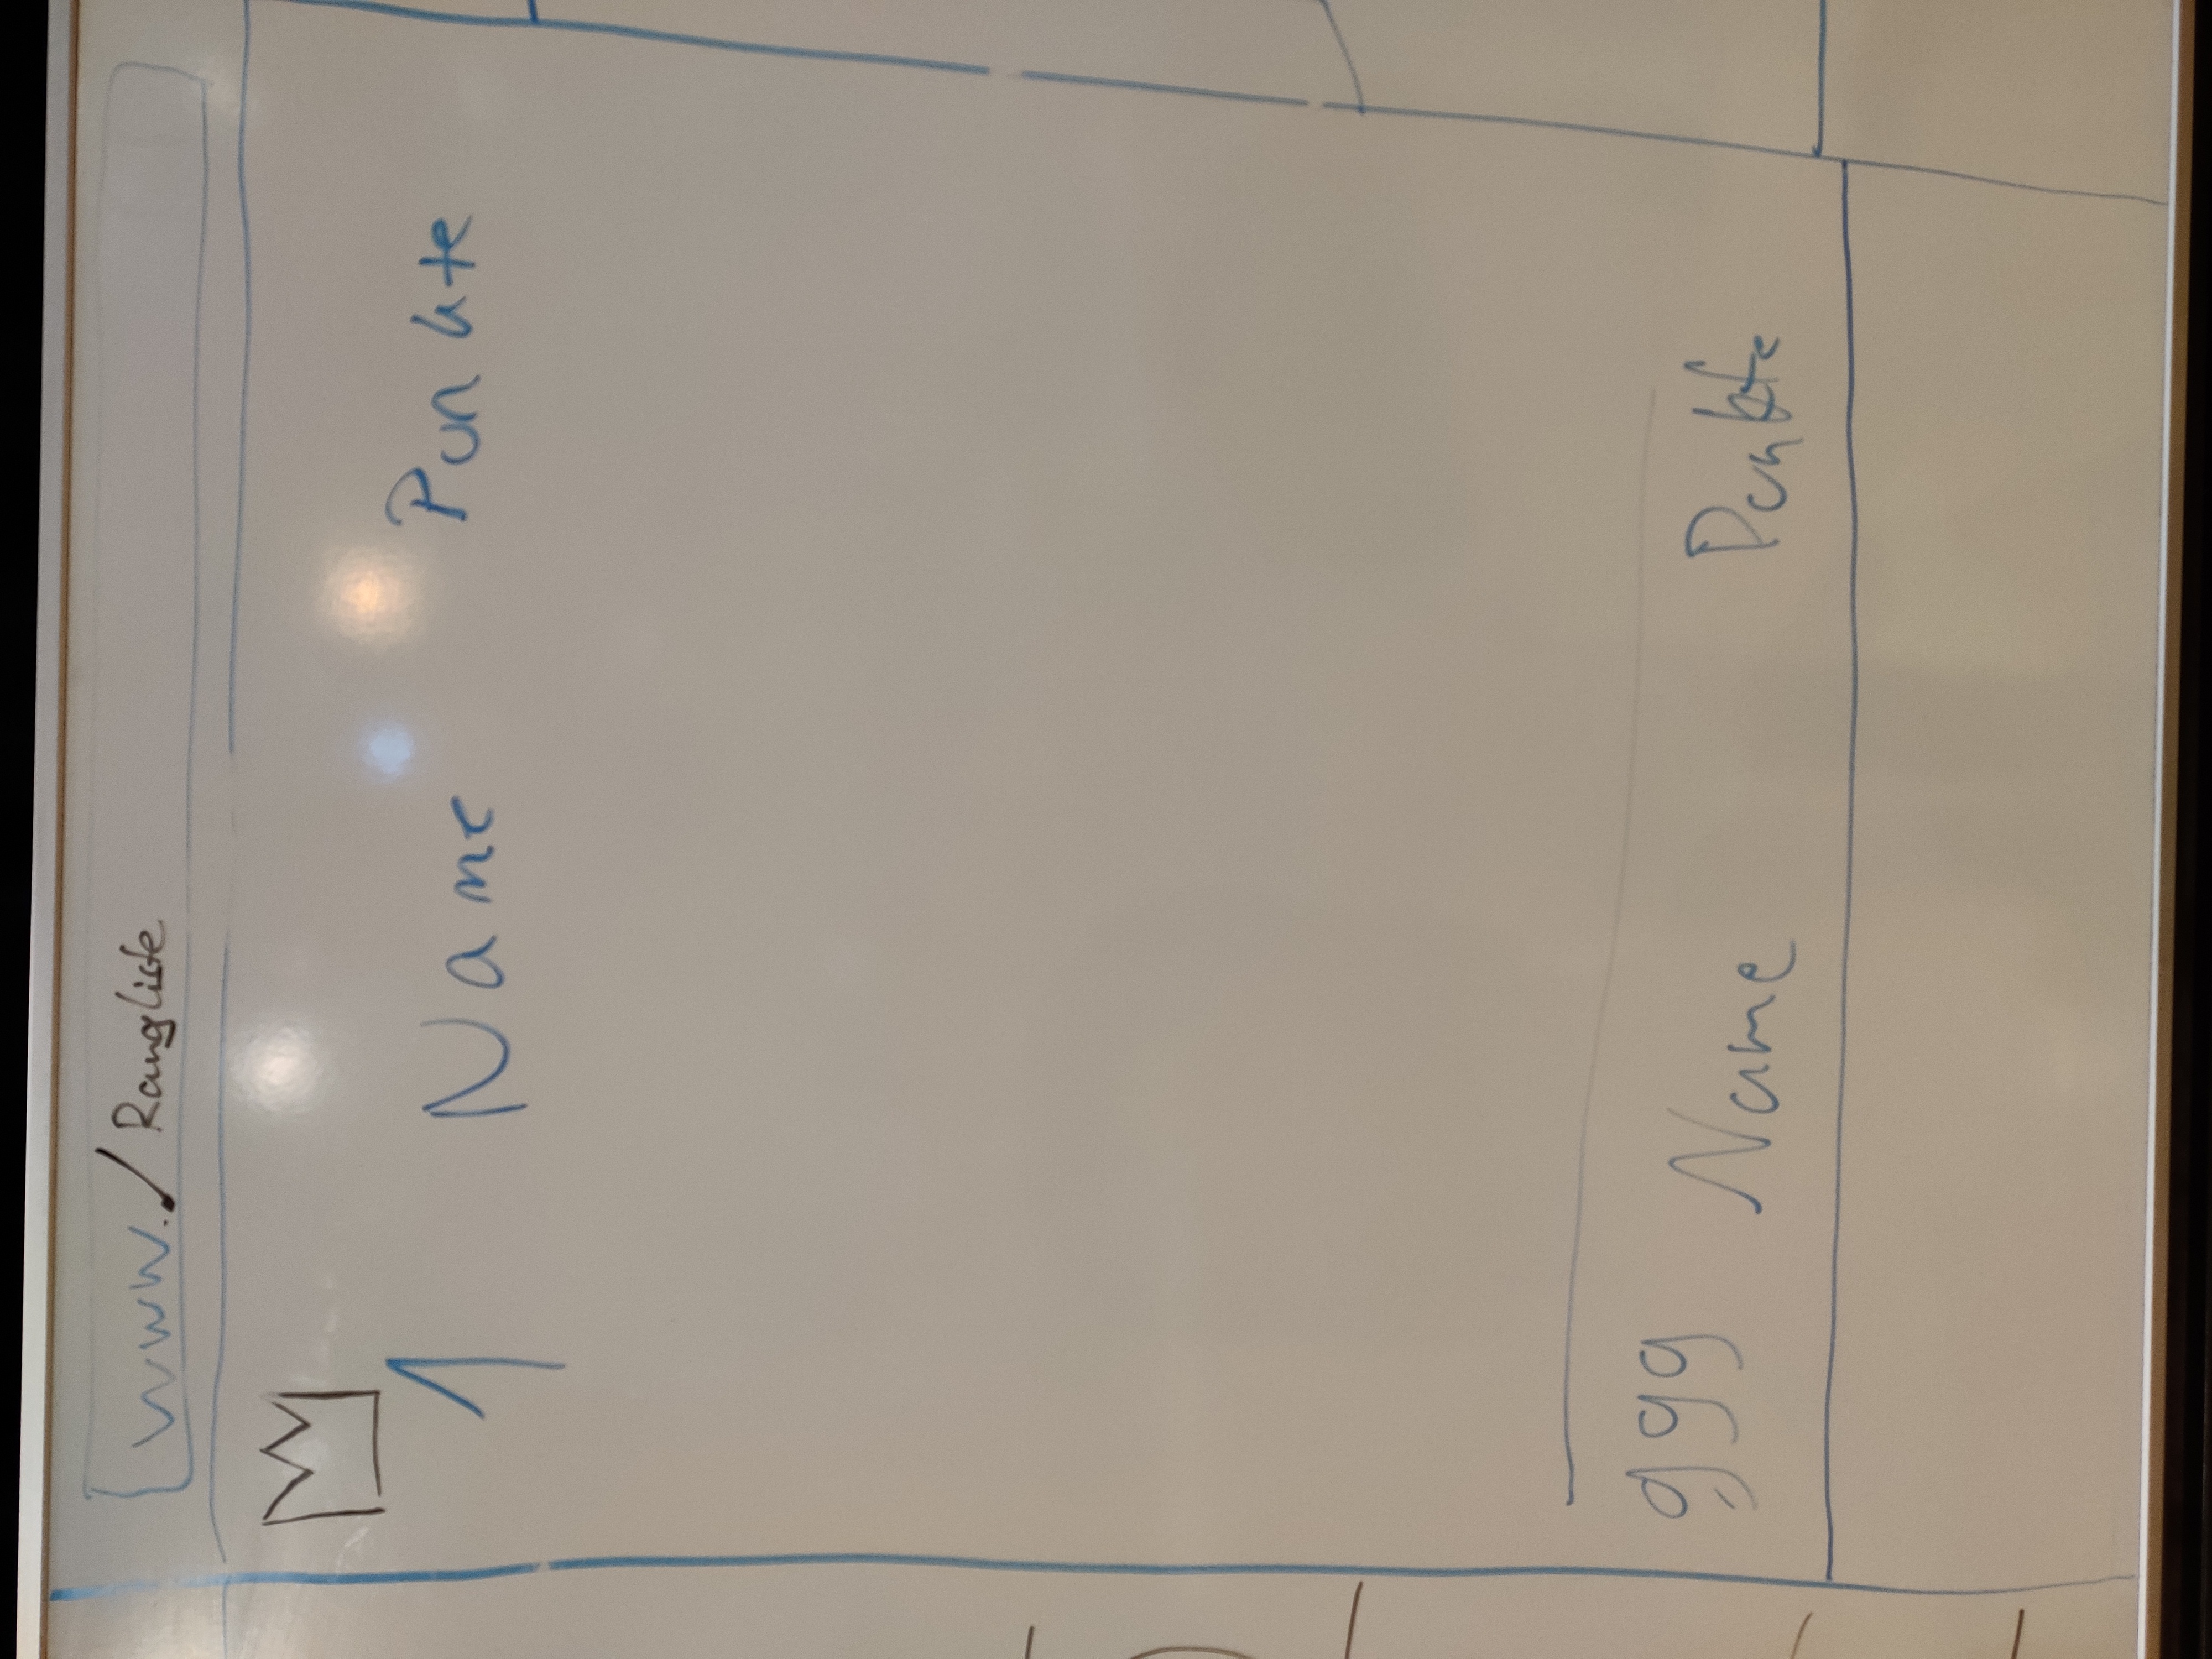 www./Rangliste
1 Name Punkte
999 Name Punkte